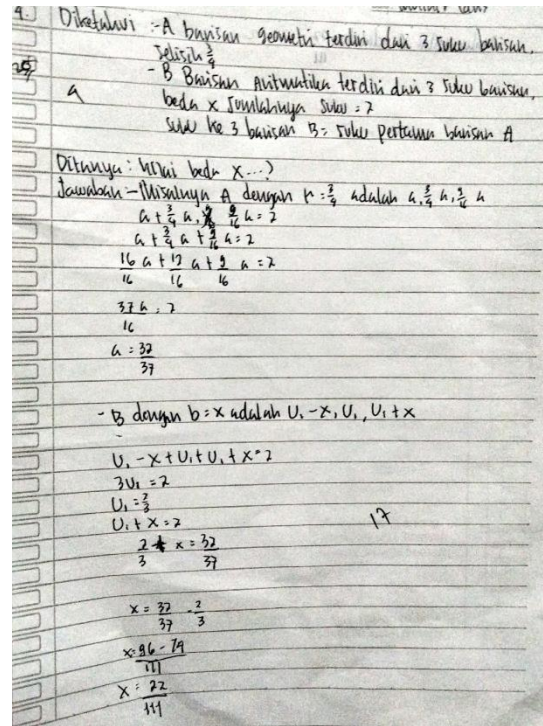 4. Diketahui :- A barisan geometri terdiri dari 3 suku barisan.
selisih 3/4
- B Barisan Aritmatika terdiri dari 3 suku barisan,
beda x jumlahnya suku = 2
suku ke 3 barisan B = suku pertama barisan A
Ditanya : nilai beda x...?
Jawaban - Misalnya A dengan r = 3/4 adalah a, 3/4 a, 9/16 a
a + 3/4 a, 9/16 a = 2
a + 3/4 a + 9/16 a = 2
16/16 a + 12/16 a + 9/16 a = 2
37a/16 = 2
a = 32/37
- B dengan b = x adalah U₁ - x, U₁, U₁ + x
U₁ - x + U₁ + U₁ + x = 2
3U₁ = 2
U₁ = 2/3
U₁ + x = 2
17
2/3 + x = 32/37
x = 32/37 - 2/3
x = 96 - 74/111
x = 22/111